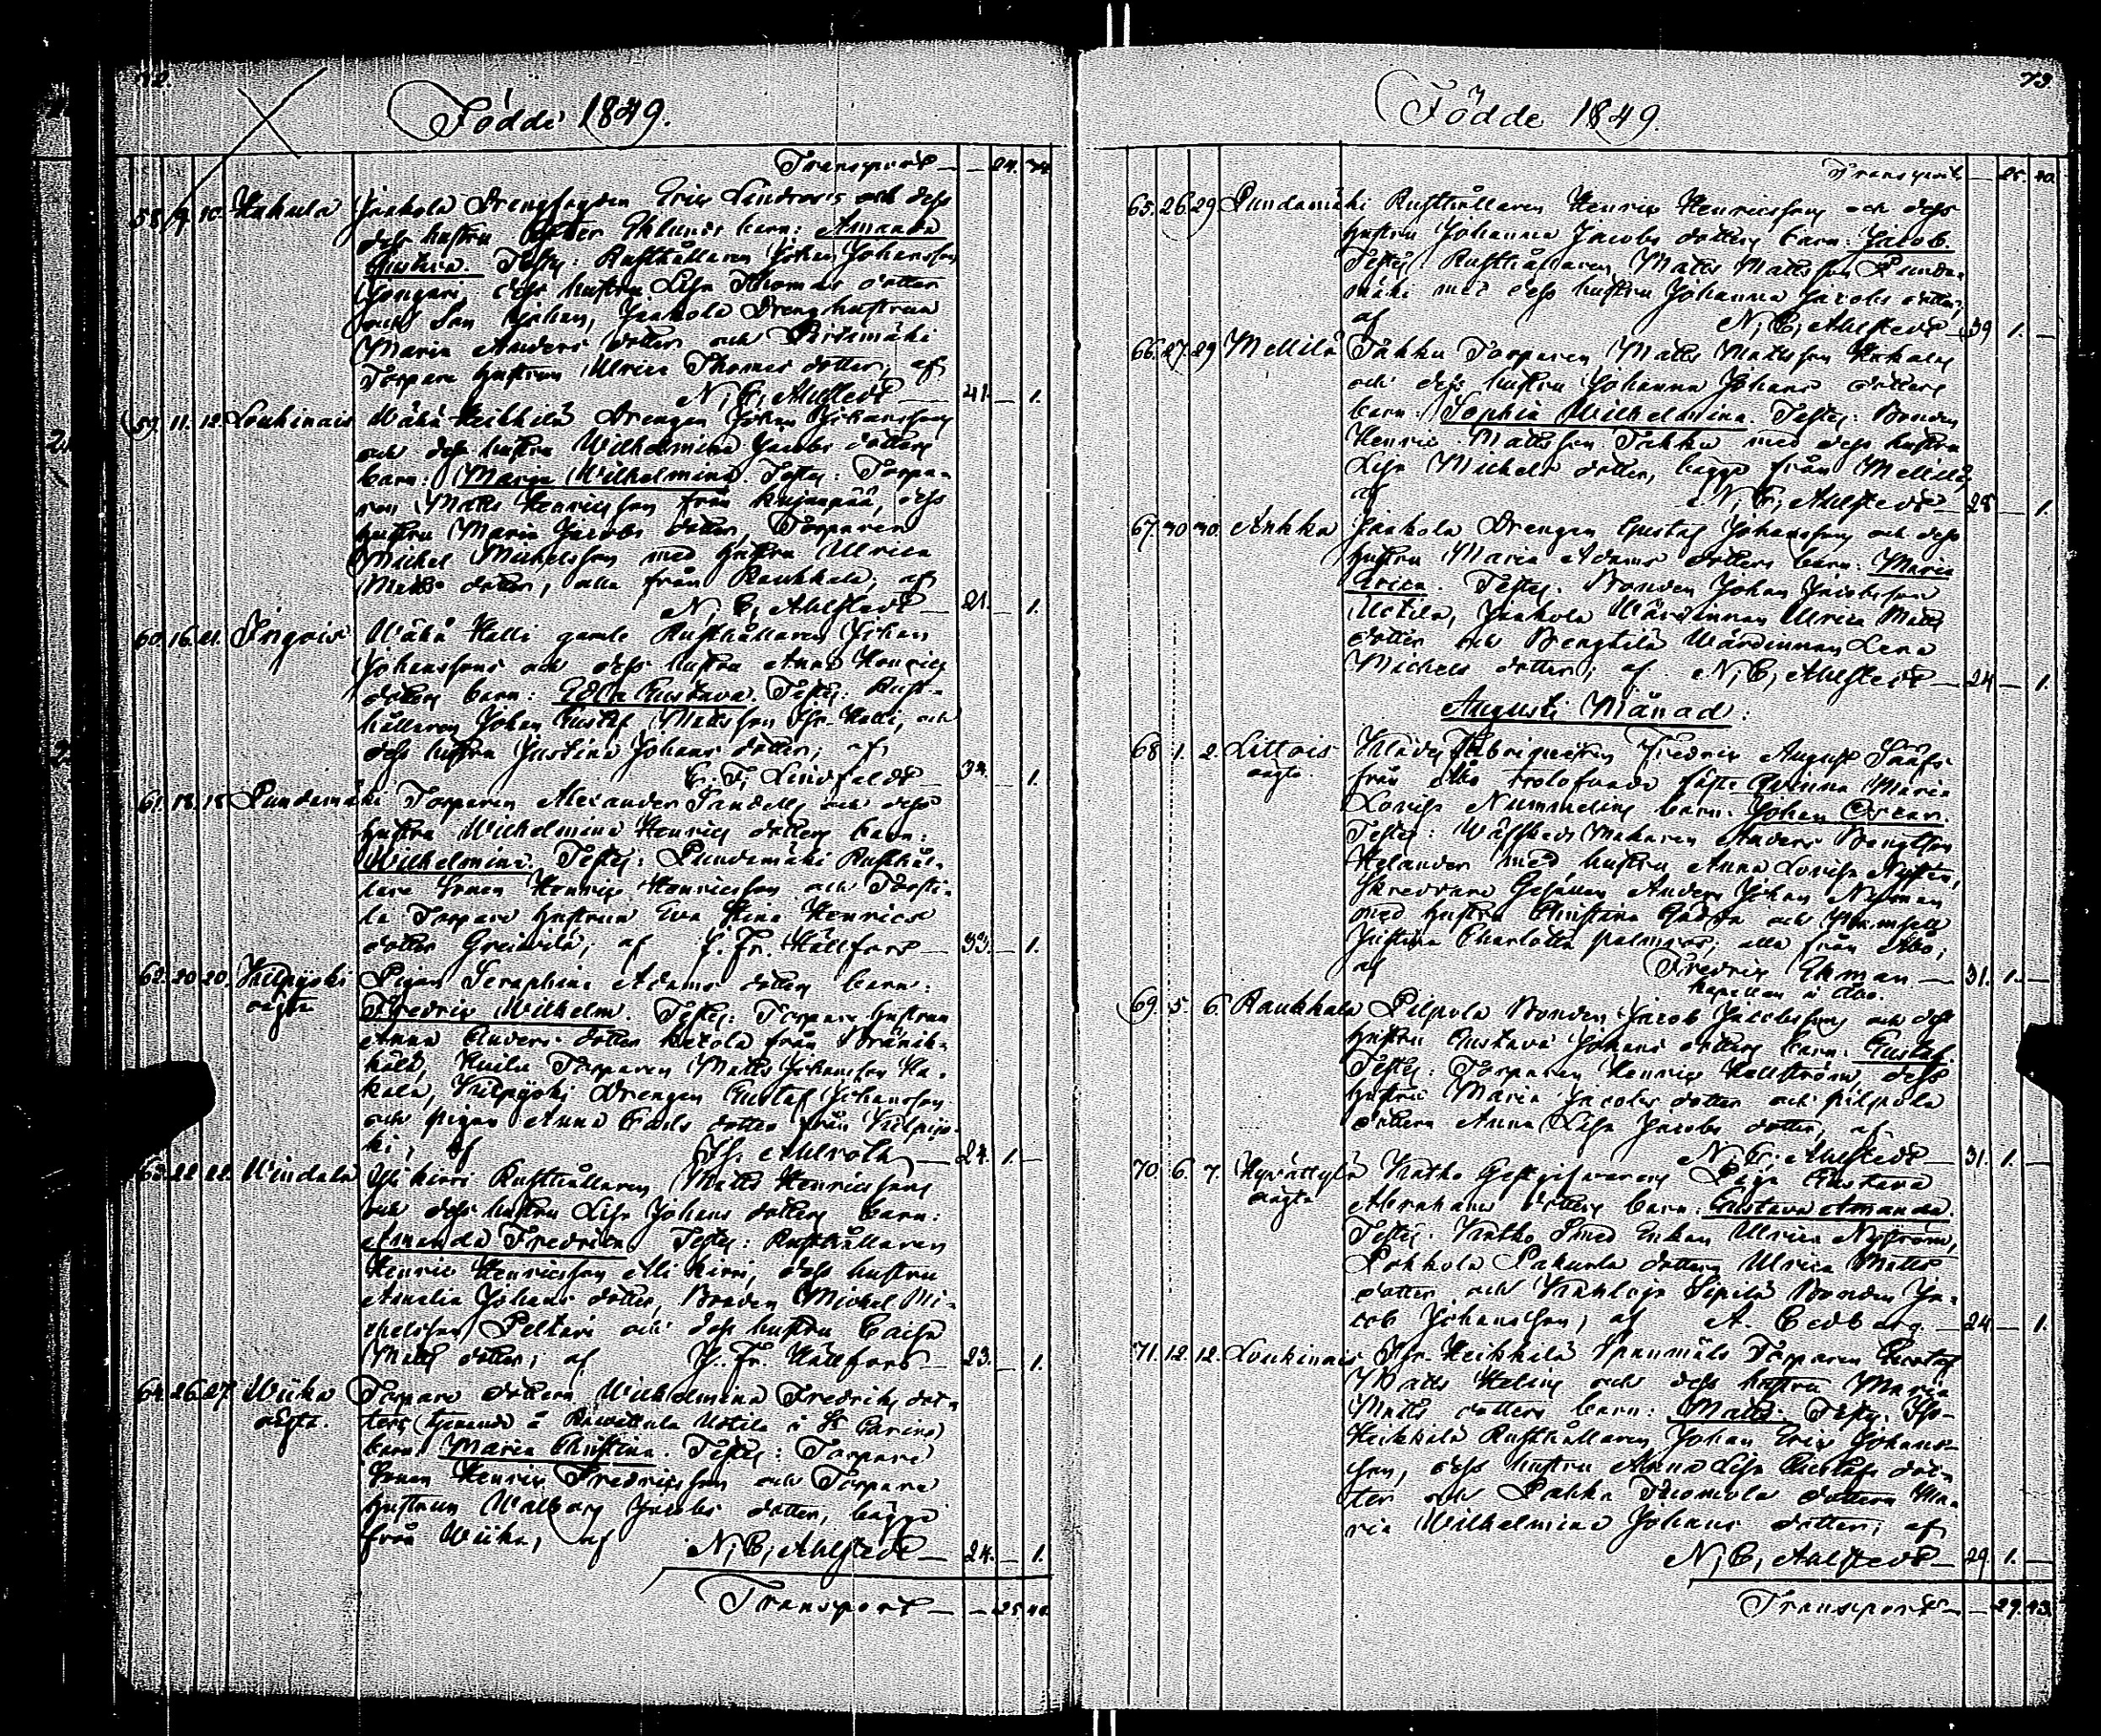 72.
Födde 1849.
Transport — — 24. 34.
58. 9. 10. Kakula Jaakola Drengfogden Eric Lindroos och dess
dess hustru Eklunds barn: Amanda
Gustava. Testes: Rusthållaren Johan Johansson
dess hustru Lisa Thomas dotter
och Son Johan, Jaakola Drengshustrun
Maria Anders dotter och Pirtsmäki
Torpare hustrun Ulrica Thomas dotter, af
N, C, Ahlstedt — 41. — 1.
59. 11. 12. Loukinais Wähä Heikkilä Drengen Johan Johanssons
och dess hustru Wilhelmina Jacobs dotters
barn: Maria Wilhelmina. Testes: Torpa-
ren Matts Henricsson från Kujanpää, dess
hustru Maria Jacobs dotter, Torparen
Michel Michelsson med hustru Ulrica
Matts dotter, alla från Raukkala, af
N, C, Ahlstedt — 21. — 1.
60. 16. 21. Ingois Wähä Halli gamle Rusthållaren Johan
Johanssons och dess hustru Anna Henrics
dotters barn: Edla Gustava. Testes: Rust-
hållaren Johan Gustaf Mattsson Iso-Halli, och
dess hustru Justina Johans dotter; af
C. F, Lindfeldt — 32. — 1.
61. 18. 18. Pundamäki Torparen Alexander Sandells och dess
hustru Wilhelmina Henrics dotters barn:
Wilhelmina. Testes: Pundamäki Rusthål-
lare Sonen Henric Henricsson och Torsti-
la Torpare hustrun Eva Stina Henrics
dotter Greivilä; af J. Fr. Hällfors — 33. — 1.
62. 20. 20. Kulpyöki Pigan Seraphina Adams dotters barn:
oägta Fredric Wilhelm. Testes: Torpare hustrun
Anna Anders dotter Ketola från
Torparen Matts Johansson Ha-
kala, Kulpyöki Drengen Gustaf Johansson
och pigan Anna Carls dotter från Kulpyö-
ki; af Ahlroth — 24. 1. —
63. 22. 22. Windala Yli kirri Rusthållaren Matts Henricssons
och dess hustru Lisa Johans dotters barn:
Amanda Fredrica. Testes: Rusthållaren
Henric Henricsson Alli kirri, dess hustru
Amalia Johans dotter, Bonden Michel Mi-
chelsson Peltari och dess hustru Caisa
Matts dotter; af J. Fr. Hällfors — 23. — 1.
64. 26. 27. Wiika Torpare dottern Wilhelmina Fredriks dot-
oägta. ters (tjenande å Räwattula Uotila i St Carins)
barn: Maria Christina. Testes: Torpare
Sonen Henric Fredricsson och Torpare
hustrun Walborg Jacobs dotter, bägge
från Wiika, af N, C, Ahlstedt — 24. — 1.
Transport — — 25. 40.
73.
Födde 1849.
Transport — 25. 40.
65. 26. 29. Pundamäki Rusthållaren Henric Henricssons och dess
hustru Johanna Jacobs dotters barn: Jacob.
Testes: Rusthållaren Matts Mattsson Punda-
mäki med dess hustru Johanna Jacobs dotter;
af N, C, Ahlstedt — 39 1. —
66. 27. 29 Mellilä Takku Torparen Matts Mattsson Hakalas
och dess hustru Johanna Johans dotters
barn: Sophia Wilhelmina. Testes: Bonden
Henric Mattsson Takku med dess hustru
Lisa Michels dotter, bägge från Mellilä,
af N, C, Ahlstedt — 28 — 1.
67. 30 30. Ankka Jaakola Drengen Gustaf Johanssons och dess
hustru Maria Adams dotters barn: Maria
Erica. Testes: Bonden Johan Jacobsson
Uotila, Jaakola Wärdinnan Ulrica Matts
dotter och Bengtilä Wärdinnan Lena
Michels dotter; af N, C, Ahlstedt — 24 — 1.
Augusti Månad:
68 1. 2. Littois Klädes Fabriqueuren Fredric August Sääfs
oägta. från Åbo trolofvade fäste Qvinna Maria
Lovisa Nummelins barn: Johan Oscar.
Testes: Wäfskeds Makaren Anders Bengtsson
Helander med hustru Anna Lovisa Nystén,
Skreddare Gesällen Anders Johan Nyman
med hustru Christina Gadda och Mamsell
Justina Charlotta Palmros; alla från Åbo;
af Fredric Ekman — 31. 1. —
kapellan i Åbo.
69. 5. 6. Raukkala Pilpola Bonden Jacob Jacobssons och dess
hustru Gustava Johans dotters barn: Gustaf.
Testes: Torparen Henric Hellström, dess
hustru Maria Jacobs dotter och Pilpola
dottern Anna Lisa Jacobs dotter, af
N, C, Ahlstedt — 31. 1. —
70. 6. 7. Hyvättylä Katko Gestgifvarens Piga Gustava
oägta Abrahams dotters barn: Gustava Amanda.
Testes: Katko Smed Enkan Ulrica Nyström,
Pokkola Pakurla dottern Ulrica Matts
dotter och Sipilä Bonden Ja-
cob Johansson; af A. Cedberg. — 24 — 1.
71. 12. 12. Loukinais Iso-Heikkilä Spanmåls Torparen Gustaf
Matts Helins och dess hustru Maria
Matts dotters barn: Matts. Testes: Iso-
Heikkilä Rusthållaren Johan Eric Johans-
son, dess hustru Anna Lisa Gustafs dot-
ter och Pahka Tuomola dottern Ma-
ria Wilhelmina Johans dotter; af
N, C, Ahlstedt — 29. 1. —
Transport — — 29. 43.